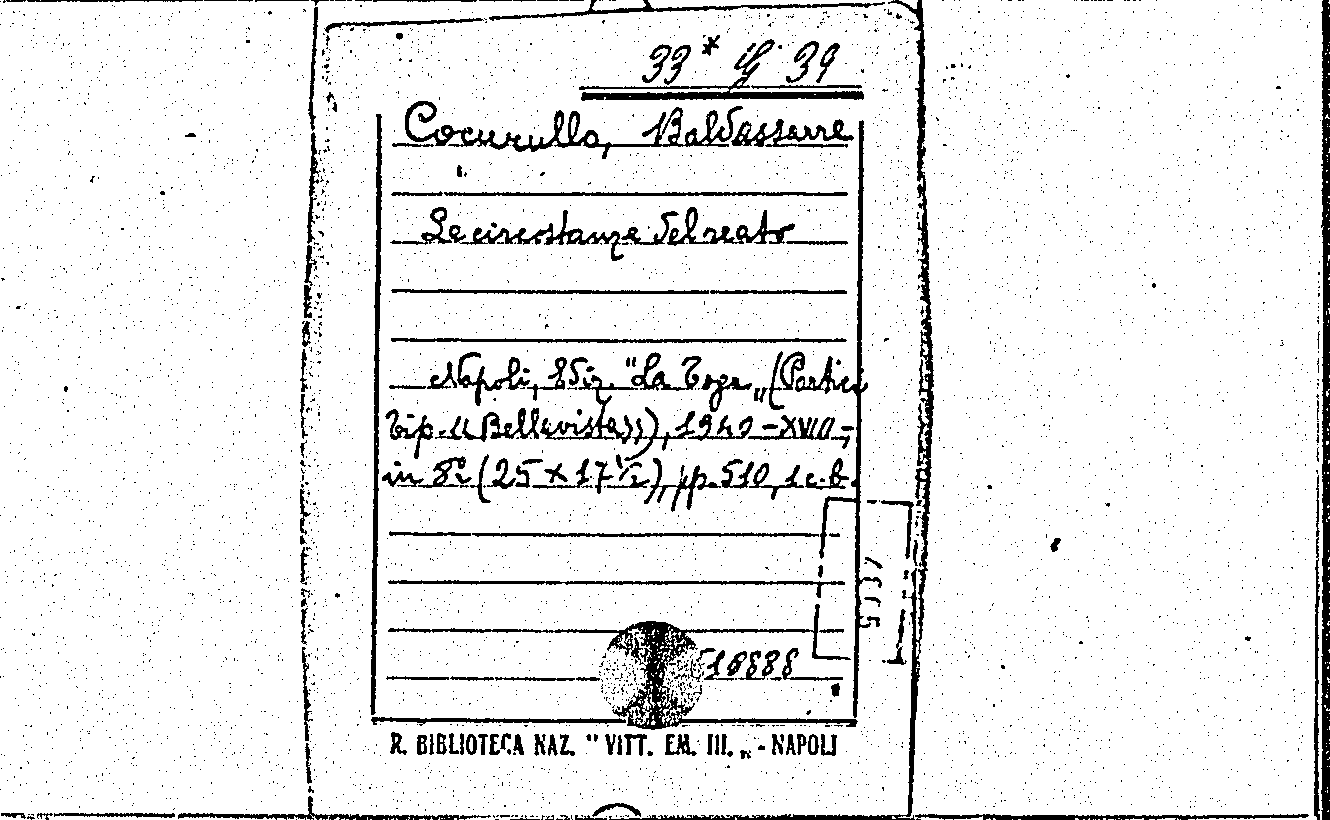 33* G 39
Cocurullo, Baldassarre
Le circostanze del reato
Napoli, Ediz. "La Toga„ (Portici
Tip. «Bellavista»), 1940-XVIII-,
in 8° (25 x 17½), pp. 510, 1 c. b.
518888
R. BIBLIOTECA NAZ. "VITT. EM. III.„ - NAPOLI